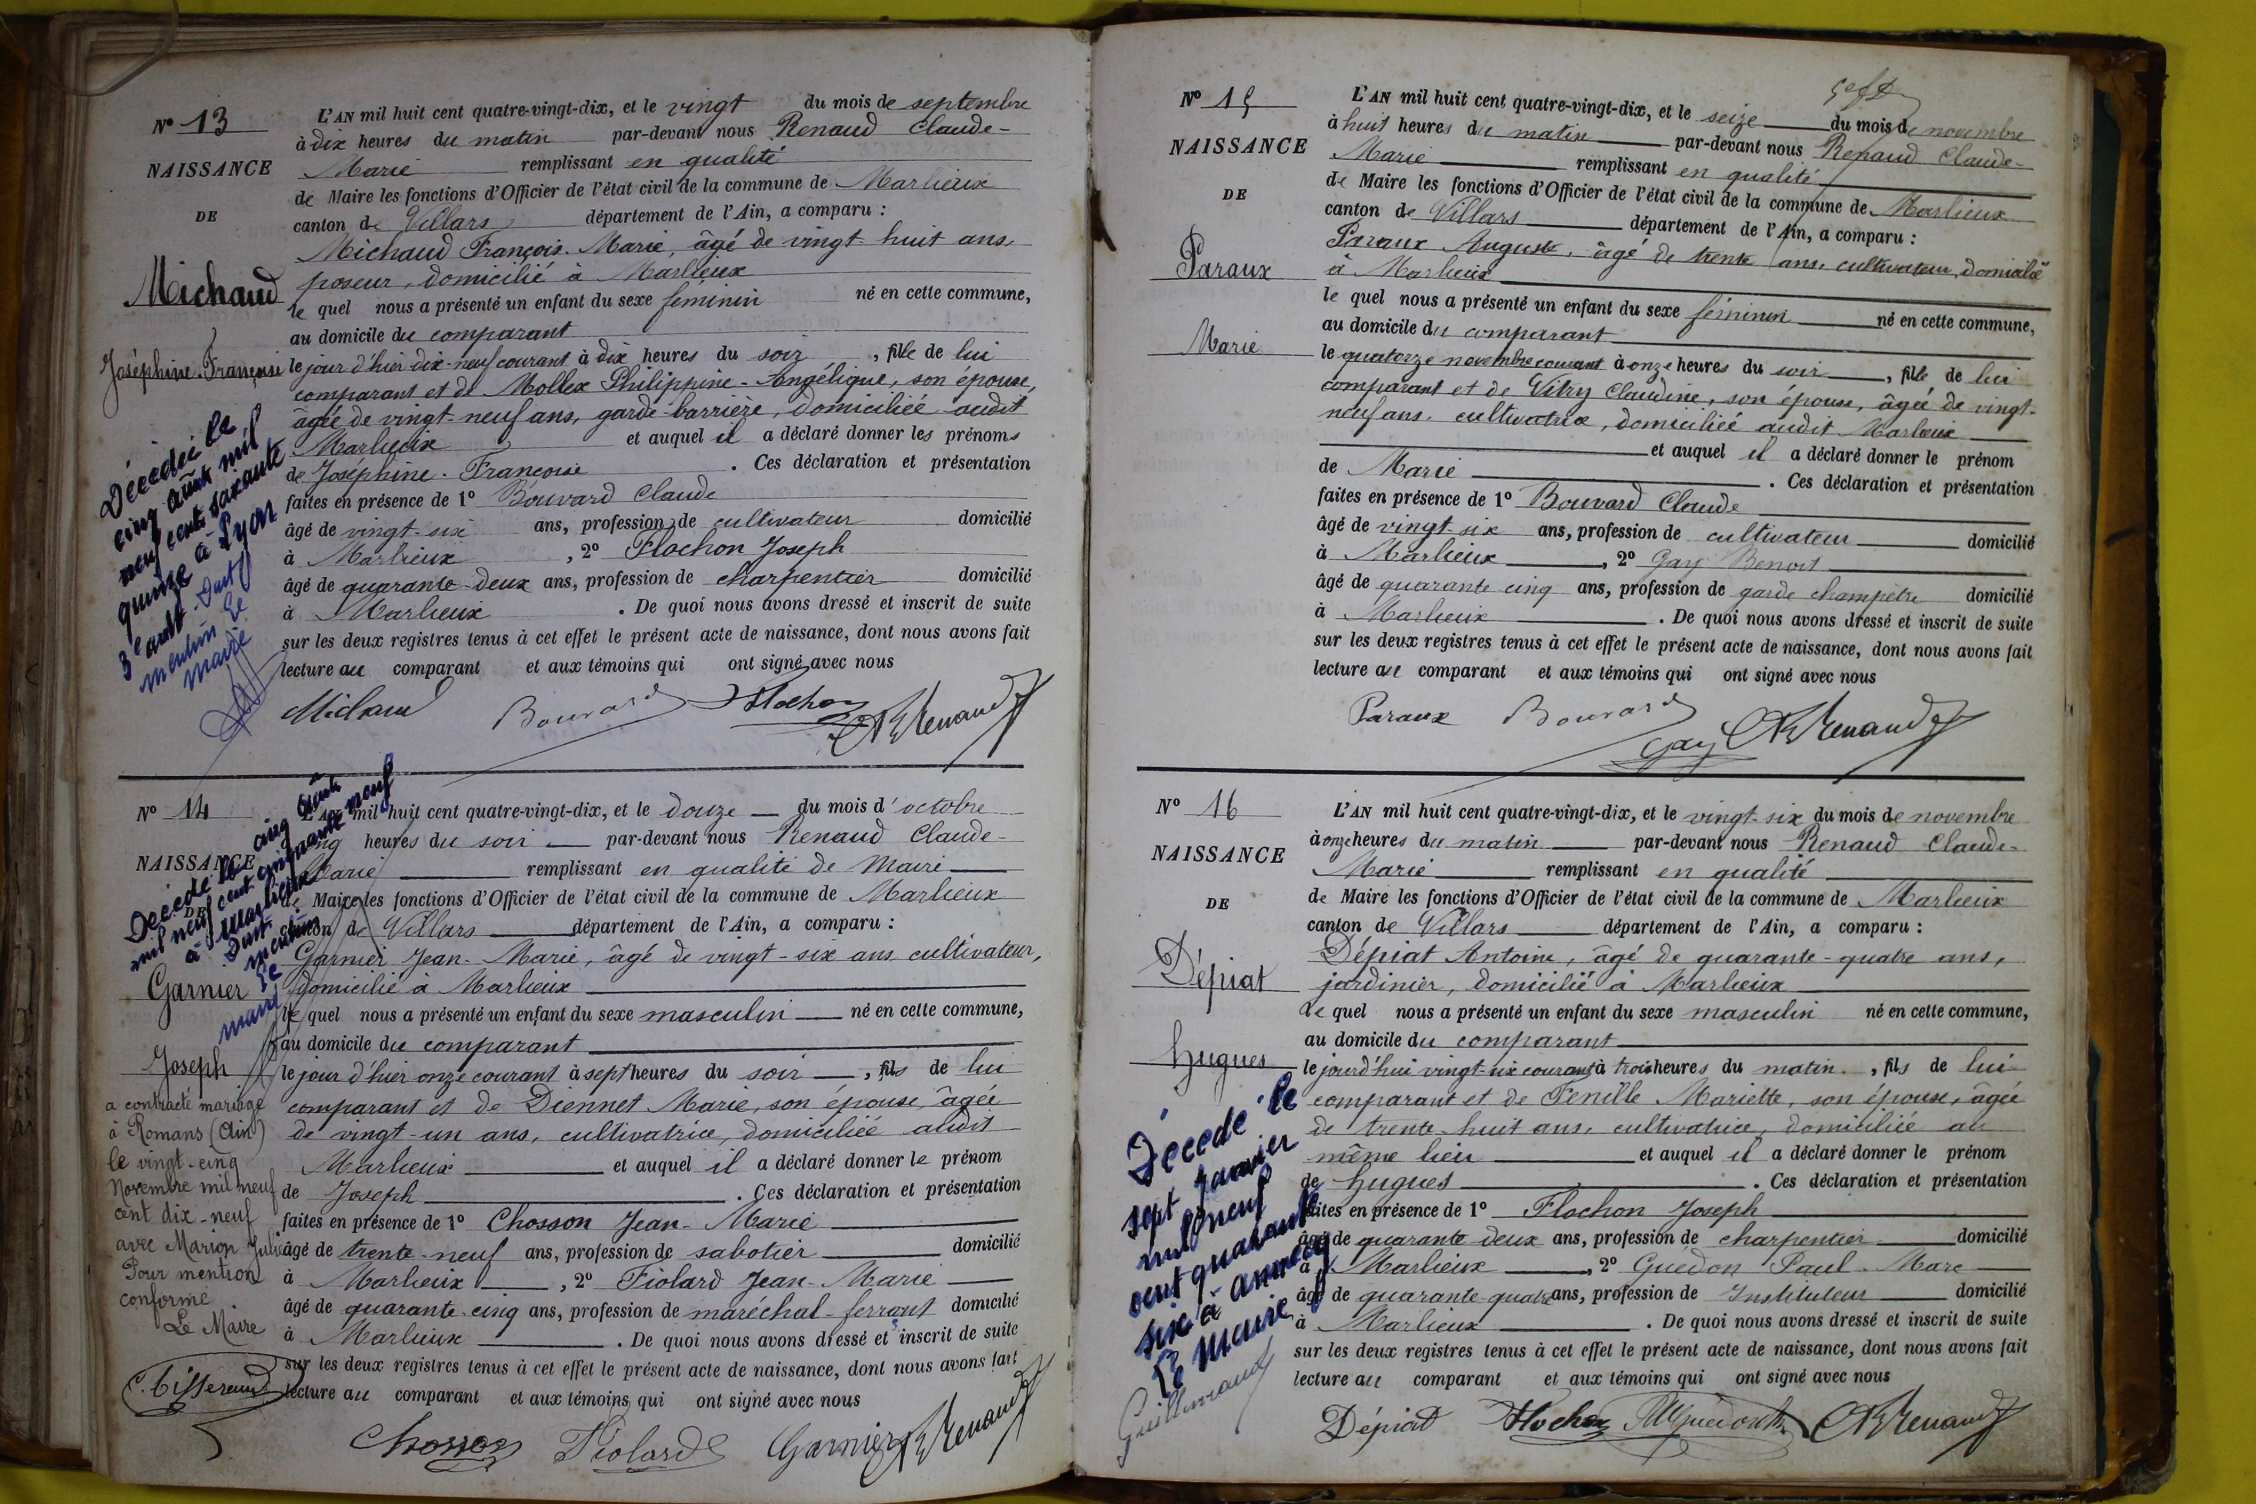 Nº 13
NAISSANCE
DE
Michaud
Joséphine-Françoise
Décédée le
cinq août mil
neuf cent soixante
quinze à Lyon
3e arrdt Dont
mention Le
maire
L'AN mil huit cent quatre-vingt-dix, et le vingt du mois de septembre
à dix heures du matin par-devant nous Renaud Claude-
Marie remplissant en qualité
de Maire les fonctions d'Officier de l'état civil de la commune de Marlieux
canton de Villars département de l'Ain, a comparu :
Michaud François-Marie, âgé de vingt-huit ans,
poseur, domicilié à Marlieux
le quel nous a présenté un enfant du sexe féminin né en cette commune,
au domicile du comparant
le jour d'hier dix-neuf courant à dix heures du soir, fille de lui
comparant et de Mollex Philippine-Angélique, son épouse,
âgée de vingt-neuf ans, garde-barrière, domiciliée audit
Marlieux et auquel il a déclaré donner les prénoms
de Joséphine-Françoise. Ces déclaration et présentation
faites en présence de 1º Bouvard Claude
âgé de vingt-six ans, profession de cultivateur domicilié
à Marlieux, 2º Flochon Joseph
âgé de quarante-deux ans, profession de charpentier domicilié
à Marlieux. De quoi nous avons dressé et inscrit de suite
sur les deux registres tenus à cet effet le présent acte de naissance, dont nous avons fait
lecture au comparant et aux témoins qui ont signé avec nous
Michaud Bouvard Flochon Renaud
Nº 14
NAISSANCE
DE
Garnier
Joseph
Décédé le cinq août
mil neuf cent cinquante neuf
à Marlieux
Dont
mention
Le
maire
a contracté mariage
à Romans (Ain)
le vingt-cinq
Novembre mil neuf
cent dix-neuf
avec Marion Julie
Pour mention
conforme
Le Maire
C. Tisserand
L'AN mil huit cent quatre-vingt-dix, et le douze du mois d'octobre
cinq heures du soir par-devant nous Renaud Claude-
Marie remplissant en qualité de Maire
de Maire les fonctions d'Officier de l'état civil de la commune de Marlieux
canton de Villars département de l'Ain, a comparu :
Garnier Jean-Marie, âgé de vingt-six ans cultivateur,
domicilié à Marlieux
le quel nous a présenté un enfant du sexe masculin né en cette commune,
au domicile du comparant
le jour d'hier onze courant à sept heures du soir, fils de lui
comparant et de Diennet Marie, son épouse, âgée
de vingt-un ans, cultivatrice, domiciliée audit
Marlieux et auquel il a déclaré donner le prénom
de Joseph. Ces déclaration et présentation
faites en présence de 1º Chosson Jean-Marie
âgé de trente-neuf ans, profession de sabotier domicilié
à Marlieux, 2º Fiolard Jean-Marie
âgé de quarante-cinq ans, profession de maréchal-ferrant domicilié
à Marlieux. De quoi nous avons dressé et inscrit de suite
sur les deux registres tenus à cet effet le présent acte de naissance, dont nous avons fait
lecture au comparant et aux témoins qui ont signé avec nous
Chosson Fiolard Garnier Renaud
Nº 15
NAISSANCE
DE
Paraux
Marie
L'AN mil huit cent quatre-vingt-dix, et le seize du mois de novembre
à huit heures du matin par-devant nous Renaud Claude-
Marie remplissant en qualité
de Maire les fonctions d'Officier de l'état civil de la commune de Marlieux
canton de Villars département de l'Ain, a comparu :
Paraux Auguste, âgé de trente ans, cultivateur, domicilié
à Marlieux
le quel nous a présenté un enfant du sexe féminin né en cette commune,
au domicile du comparant
le quatorze novembre courant à onze heures du soir, fille de lui
comparant et de Vitry Claudine, son épouse, âgée de vingt-
neuf ans, cultivatrice, domiciliée audit Marlieux
et auquel il a déclaré donner le prénom
de Marie. Ces déclaration et présentation
faites en présence de 1º Bouvard Claude
âgé de vingt-six ans, profession de cultivateur domicilié
à Marlieux, 2º Gay Benoit
âgé de quarante cinq ans, profession de garde champêtre domicilié
à Marlieux. De quoi nous avons dressé et inscrit de suite
sur les deux registres tenus à cet effet le présent acte de naissance, dont nous avons fait
lecture au comparant et aux témoins qui ont signé avec nous
Paraux Bouvard Gay Renaud
Nº 16
NAISSANCE
DE
Dépiat
Hugues
Décédé le
sept janvier
mil neuf
cent quarante
six à Annecy
Le Maire
Guillermand
L'AN mil huit cent quatre-vingt-dix, et le vingt-six du mois de novembre
à onze heures du matin par-devant nous Renaud Claude-
Marie remplissant en qualité
de Maire les fonctions d'Officier de l'état civil de la commune de Marlieux
canton de Villars département de l'Ain, a comparu :
Dépiat Antoine, âgé de quarante-quatre ans,
jardinier, domicilié à Marlieux
le quel nous a présenté un enfant du sexe masculin né en cette commune,
au domicile du comparant
le jourd'hui vingt-six courant à trois heures du matin, fils de lui
comparant et de Fenille Mariette, son épouse, âgée
de trente-huit ans, cultivatrice, domiciliée au
même lieu et auquel il a déclaré donner le prénom
de Hugues. Ces déclaration et présentation
faites en présence de 1º Flochon Joseph
âgé de quarante-deux ans, profession de charpentier domicilié
à Marlieux, 2º Guédon Paul-Marc
âgé de quarante-quatre ans, profession de Instituteur domicilié
à Marlieux. De quoi nous avons dressé et inscrit de suite
sur les deux registres tenus à cet effet le présent acte de naissance, dont nous avons fait
lecture au comparant et aux témoins qui ont signé avec nous
Dépiat Flochon Guédon Renaud